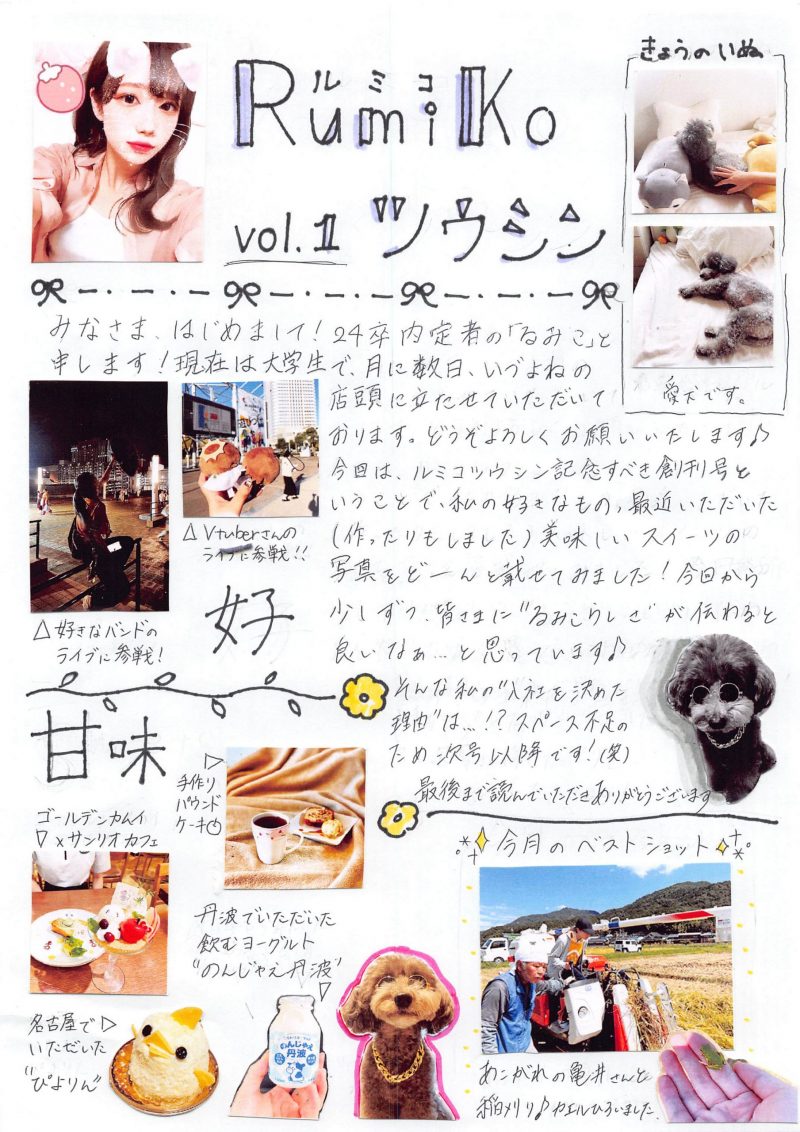 ルミコ
RumiKo
vol.1 ツウシン
きょうのいぬ
愛犬です。
みなさま、はじめまして！24卒内定者の「るみこ」と
申します！現在は大学生で、月に数日、いづよねの
店頭に立たせていただいて
おります。どうぞよろしくお願いいたします♪
今回は、ルミコツウシン記念すべき創刊号と
いうことで、私の好きなもの、最近いただいた
(作ったりもしました)美味しいスイーツの
写真をどーんと載せてみました！今回から
少しずつ、皆さまに"るみこらしさ"が伝わると
良いなぁ…と思っています♪
そんな私の"入社を決めた
理由"は…!?スペース不足の
ため次号以降です！(笑)
最後まで読んでいただきありがとうございます
△好きなバンドの
ライブに参戦！
△Vtuberさんの
ライブに参戦!!
好
甘味
▷
手作り
パウンド
ケーキ
ゴールデンカムイ
▽×サンリオカフェ
丹波でいただいた
飲むヨーグルト
"のんじゃえ丹波"
▽
のんじゃえ
丹波
名古屋で▷
いただいた
"ぴよりん"
今月のベストショット
あこがれの亀井さんと
稲刈り♪カエルひろいました.